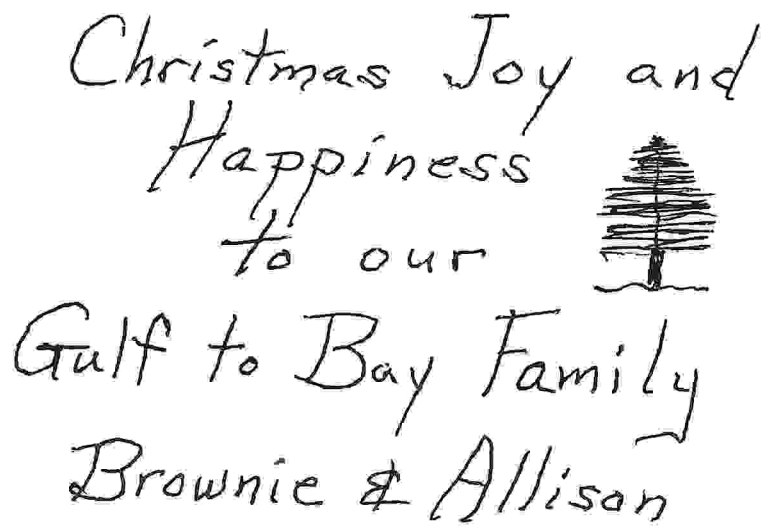 Christmas Joy and
Happiness
to our
Gulf to Bay Family
Brownie & Allison